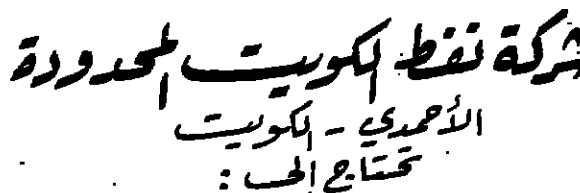 شركة نفط الكويت المحدودة
الأحمدي - الكويت
تحتاج إلى :